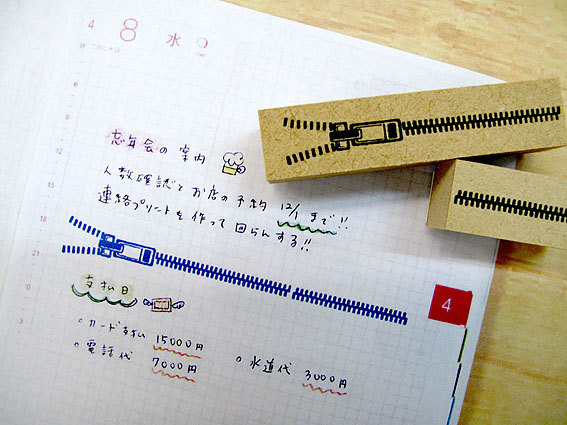 4 8 水
12
忘年会の案内
人数確認とお店の予約 12/1まで!!
連絡プリントを作って回らんする!!
15
18
21
0
3
4
支払日
○カード支払 15000円
○電話代 7000円 ○水道代 3000円